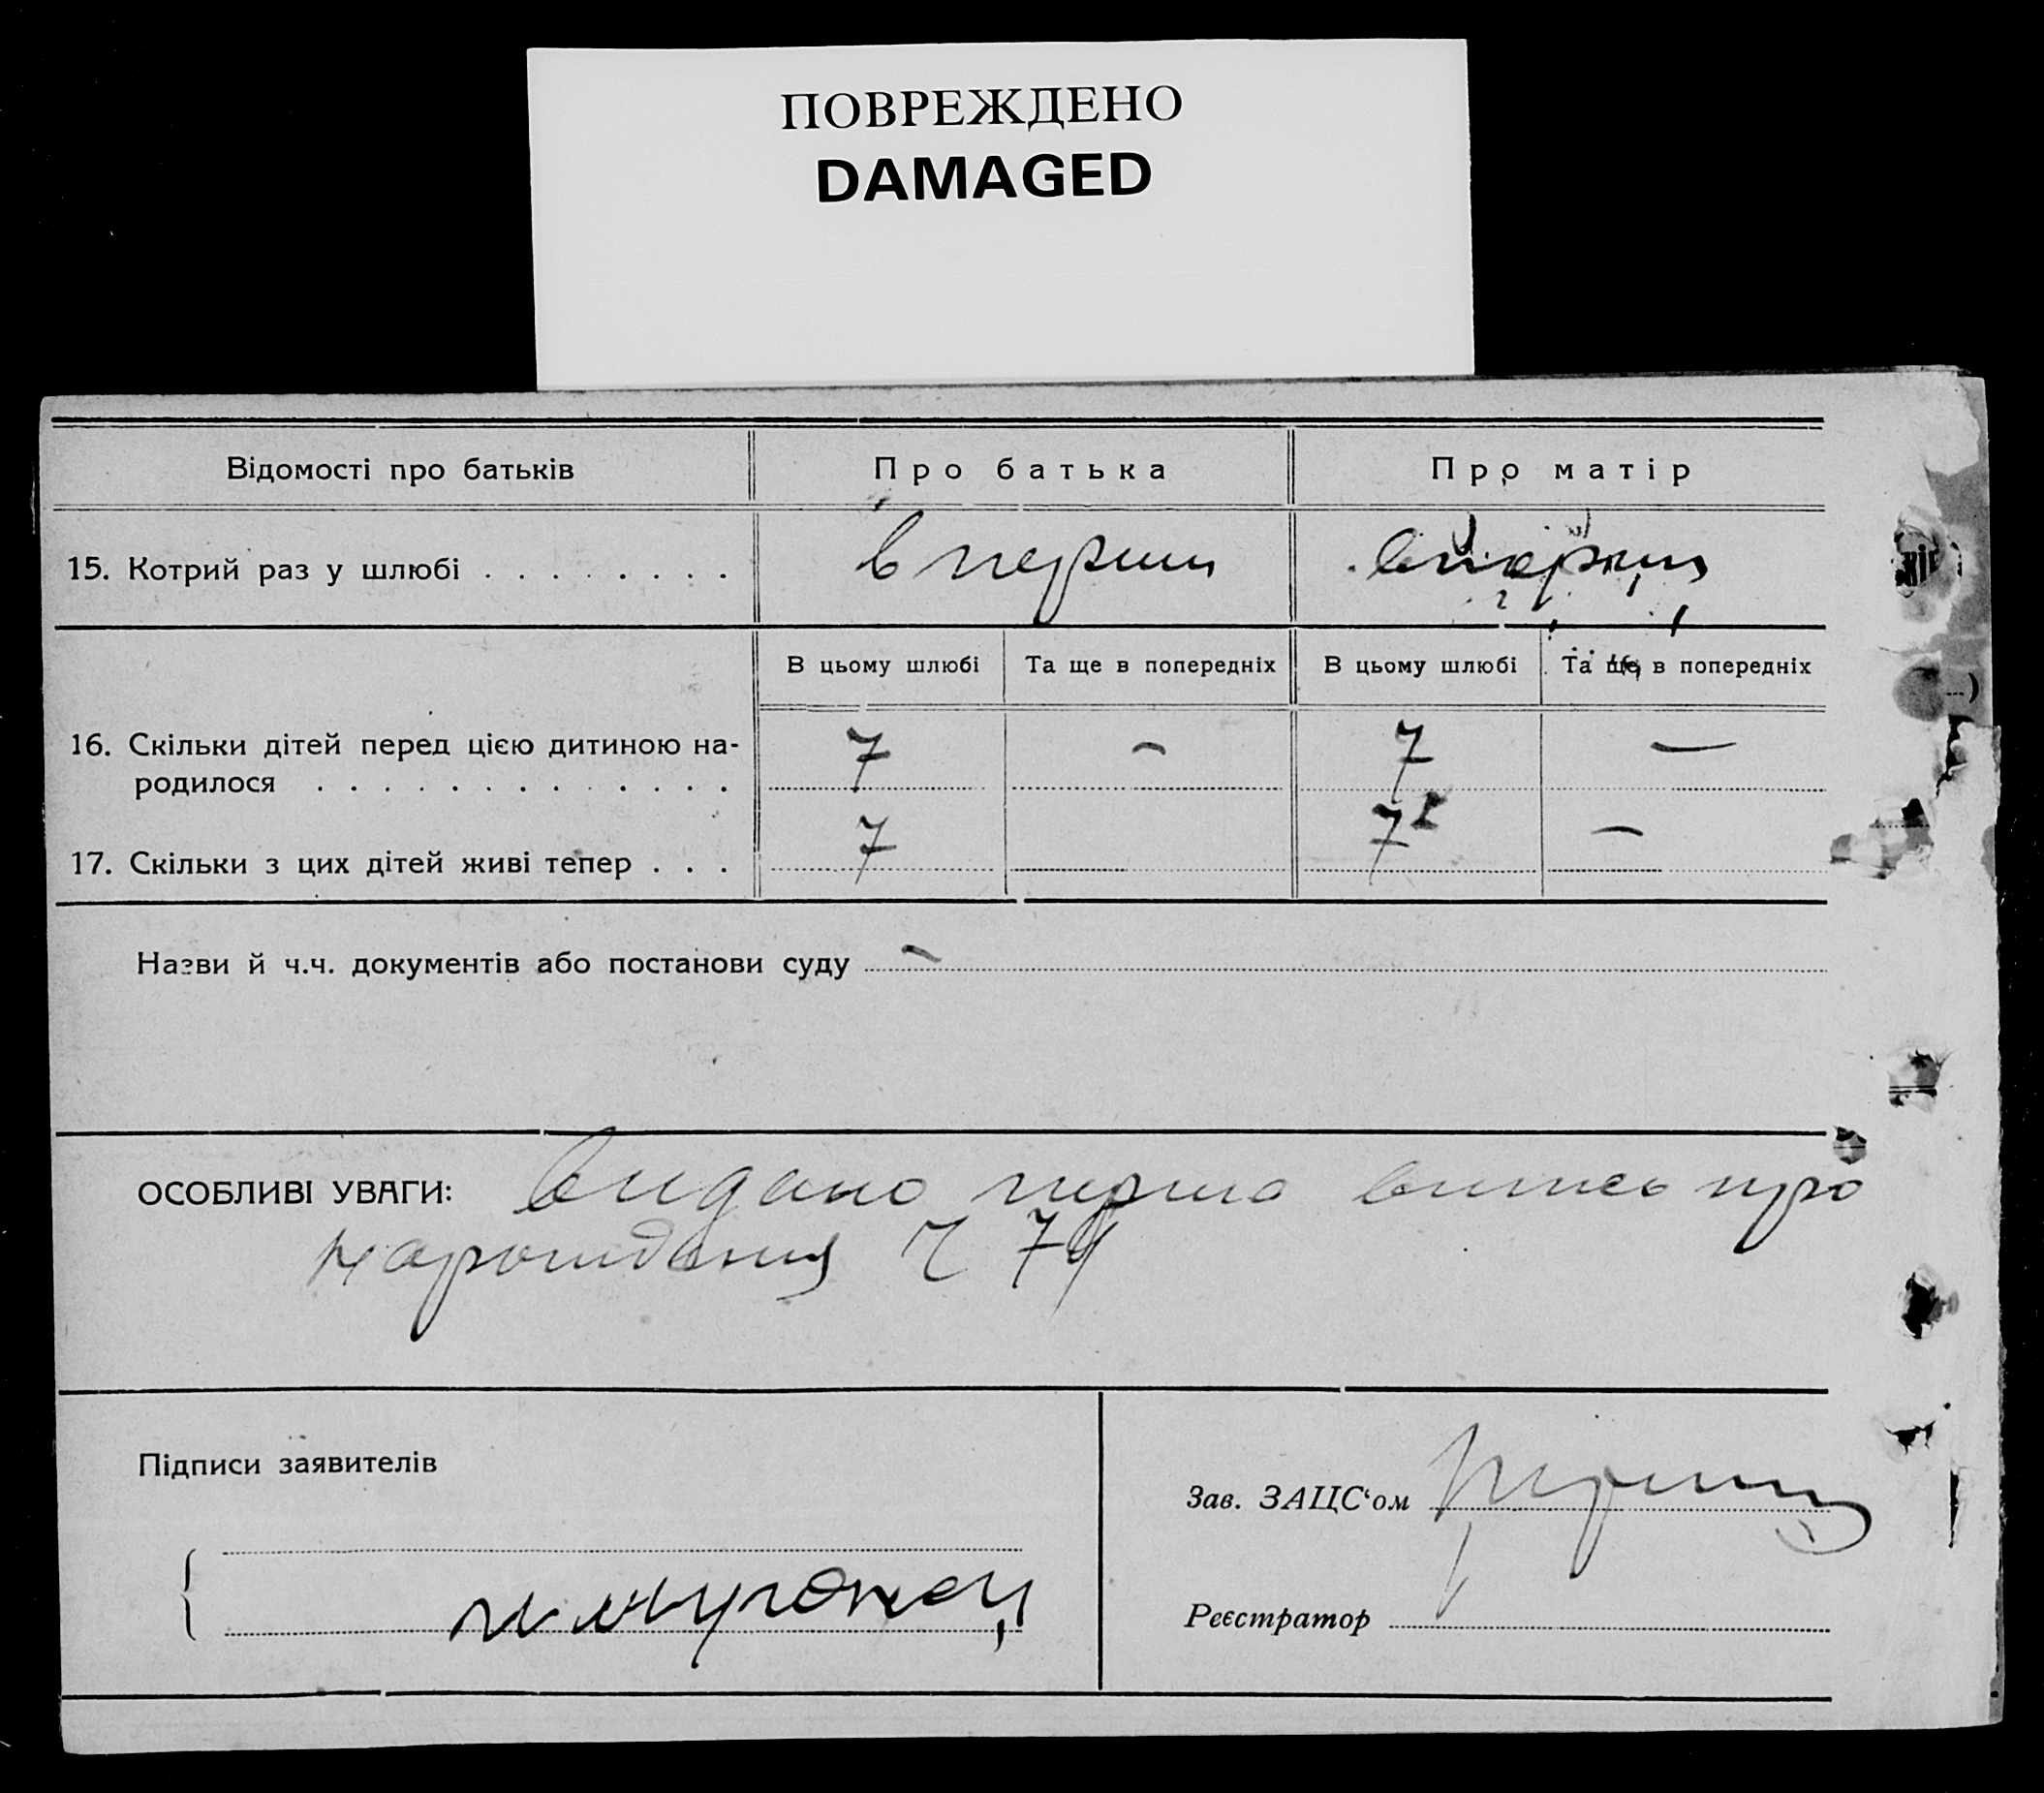 ПОВРЕЖДЕНО
DAMAGED
Відомості про батьків
Про батька
Про матір
15. Котрий раз у шлюбі
вперши
вперши
В цьому шлюбі
Та ще в попередніх
В цьому шлюбі
Та ще в попередніх
16. Скільки дітей перед цією дитиною на-
родилося
7
—
7
—
17. Скільки з цих дітей живі тепер
7
7
—
Назви й ч.ч. документів або постанови суду —
ОСОБЛИВІ УВАГИ: видано перша випись про
народження Ч 74
Підписи заявителів
Зав. ЗАЦС‘ом
Реєстратор